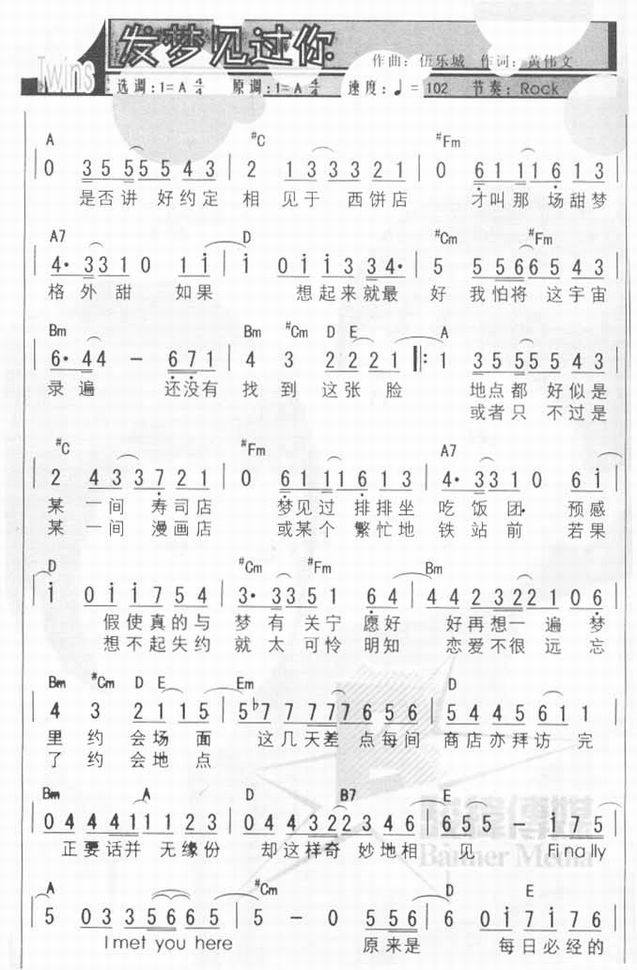 Twins
发梦见过你
作曲：伍乐城 作词：黄伟文
选调：1=A 4/4 原调：1=A 4/4 速度：♩=102 节奏：Rock
A #C #Fm
0 3555543 2 133321 0 6111613
是否讲 好约定 相 见于 西饼店 才叫那 场甜梦
A7 D #Cm #Fm
4·3310 1i i 0ii334· 5 55666543
格外甜 如果 想起来就最 好 我怕将 这宇宙
Bm Bm #Cm D E A
6·44 – 671 4 3 2221 1 3555543
录遍 还没有 找 到 这张 脸 地点都 好似是
或者只 不过是
#C #Fm A7
2 433721 0 6111613 4·3310 6i
某 一间 寿司店 梦见过 排排坐 吃 饭 团 预感
某 一间 漫画店 或某个 繁忙地 铁站前 若果
D #Cm #Fm Bm
i 0ii754 3·3351 64 4423221 06
假使真的与 梦 有 关宁 愿好 好再想一遍 梦
想不起失约 就太 可怜 明知 恋爱不很 远 忘
Bm #Cm D E Em D
4 3 2115 5♭7 7777656 5445611
里 约 会场 面 这几 天差 点每间 商店亦拜访 完
了 约 会地 点
Bm A D B7 E
04441123 044322346 655 – i75
正要话并 无缘份 却这样奇 妙地相 见 Finally
A #Cm D E
5 0335665 5 – 0 556 6 0i7i76
I met you here 原来是 每日必经的
Banner Media